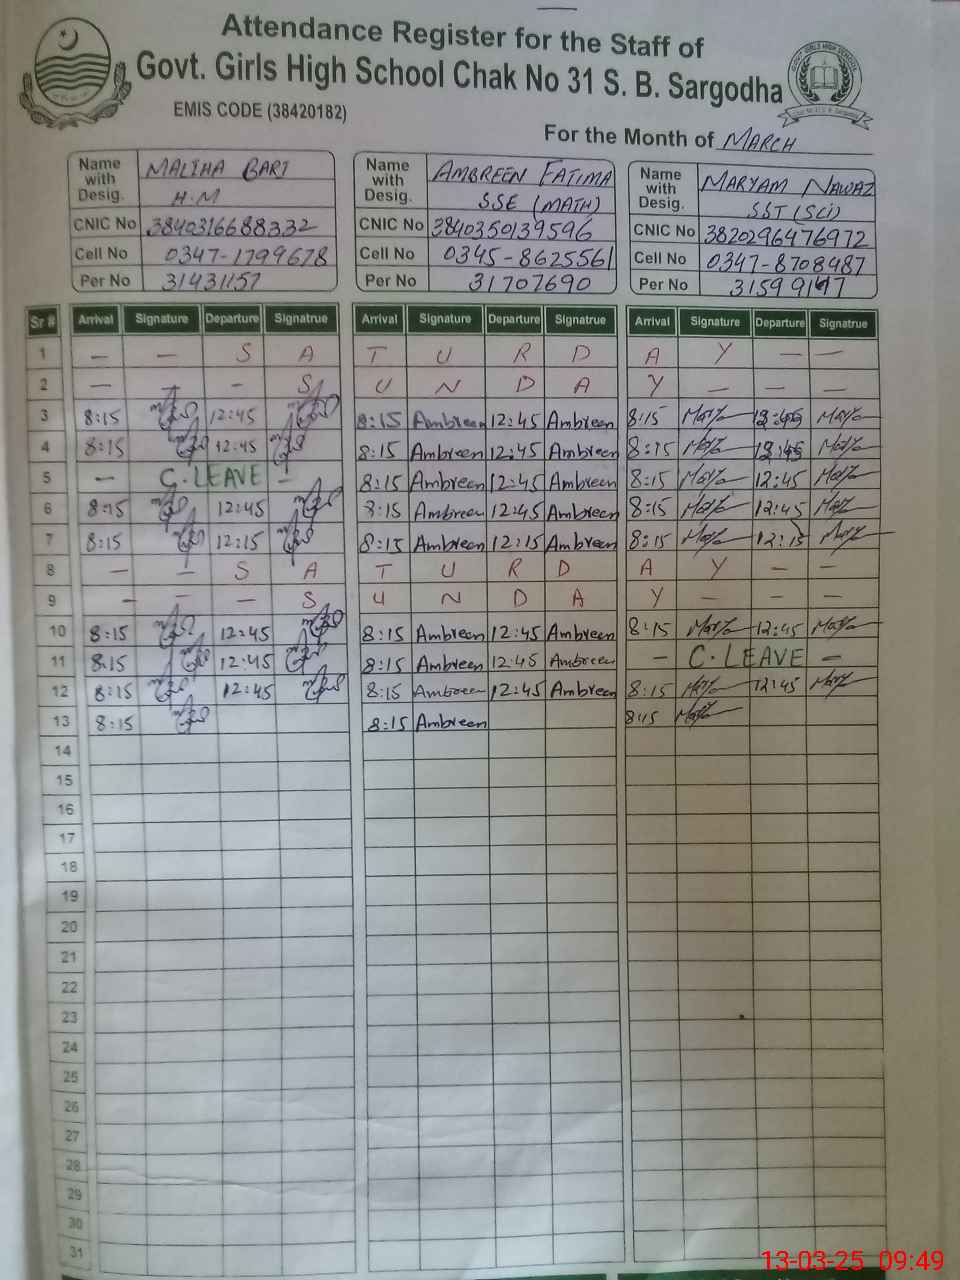 Attendance Register for the Staff of
Govt. Girls High School Chak No 31 S. B. Sargodha
EMIS CODE (38420182)
For the Month of MARCH
Name with Desig. MALIHA BARI H.M
CNIC No 3840316688332
Cell No 0347-1799678
Per No 31431157
Name with Desig. AMBREEN FATIMA SSE (MATH)
CNIC No 3840350139596
Cell No 0345-8625561
Per No 31707690
Name with Desig. MARYAM NAWAZ SST (SCI)
CNIC No 3820296476972
Cell No 0347-8708487
Per No 31599147
Sr # Arrival Signature Departure Signatrue Arrival Signature Departure Signatrue Arrival Signature Departure Signatrue
1 — — S A T U R D A Y — —
2 — — - S U N D A Y — — —
3 8:15 12:45 8:15 Ambreen 12:45 Ambreen 8:15 12:45
4 8:15 12:45 8:15 Ambreen 12:45 Ambreen 8:15 12:45
5 — C.LEAVE — 8:15 Ambreen 12:45 Ambreen 8:15 12:45
6 8:15 12:45 8:15 Ambreen 12:45 Ambreen 8:15 12:45
7 8:15 12:15 8:15 Ambreen 12:15 Ambreen 8:15 12:15
8 — — S A T U R D A Y — —
9 — — — S U N D A Y — — —
10 8:15 12:45 8:15 Ambreen 12:45 Ambreen 8:15 12:45
11 8:15 12:45 8:15 Ambreen 12:45 Ambreen — C.LEAVE —
12 8:15 12:45 8:15 Ambreen 12:45 Ambreen 8:15 12:45
13 8:15 8:15 Ambreen 8:15
14
15
16
17
18
19
20
21
22
23
24
25
26
27
28
29
30
31
13-03-25 09:49